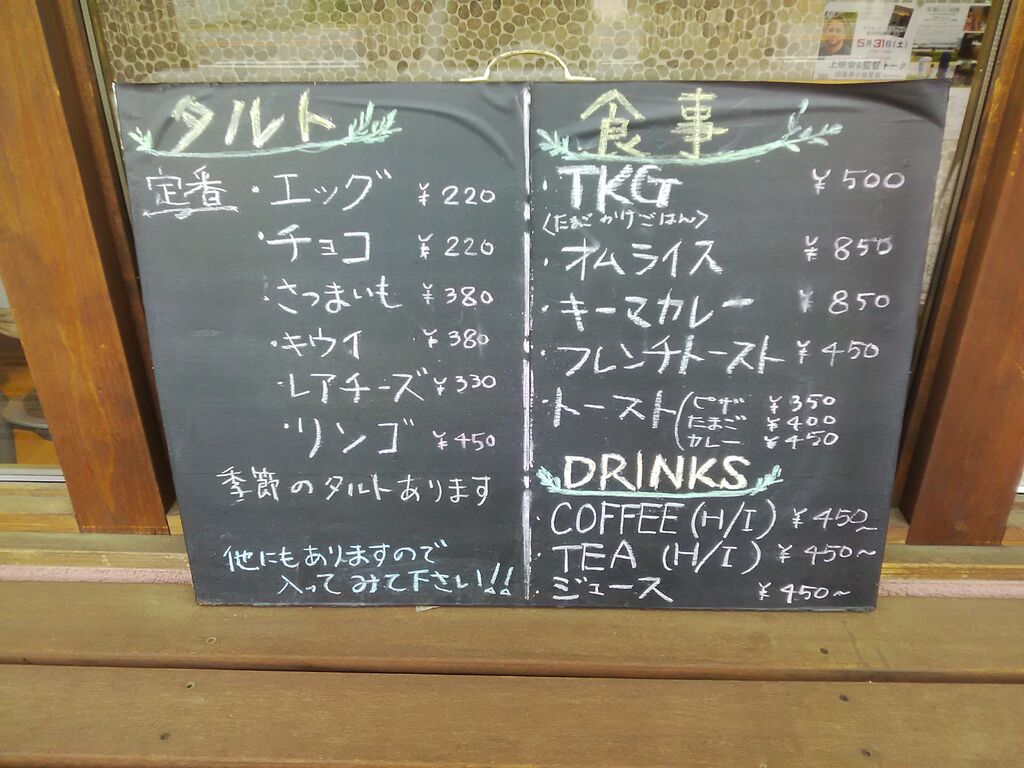 5月31日(土)
上映会&監督トーク
タルト
定番 ・エッグ ¥220
・チョコ ¥220
・さつまいも ¥380
・キウイ ¥380
・レアチーズ ¥330
・リンゴ ¥450
季節のタルトあります
他にもありますので
入ってみて下さい!!
食事
・TKG ¥500
〈たまごかけごはん〉
・オムライス ¥850
・キーマカレー ¥850
・フレンチトースト ¥450
・トースト(ピザ ¥350
たまご ¥400
カレー ¥450
DRINKS
・COFFEE (H/I) ¥450~
・TEA (H/I) ¥450~
・ジュース ¥450~